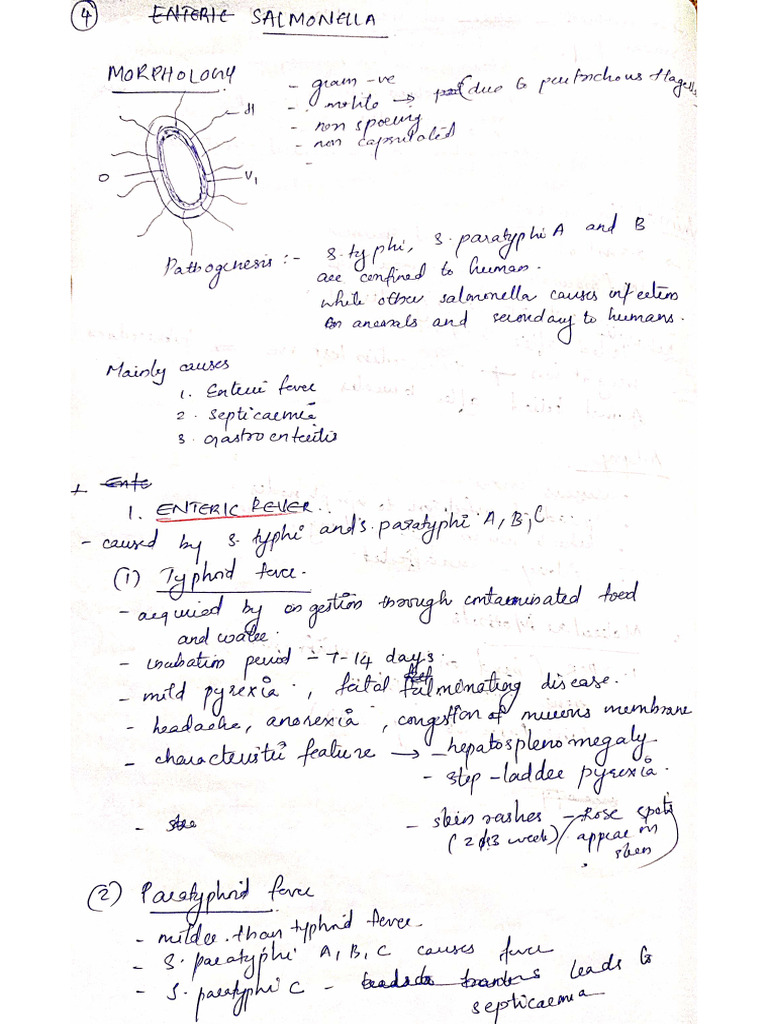 4 ENTERIC SALMONELLA
MORPHOLOGY
- gram -ve
- motile → (due to peritrichous flagella
- non sporing
- non capsulated
-
H
O
V1
Pathogenesis :- S. typhi, S. paratyphi A and B
are confined to human.
while other salmonella causes infection
in animals and secondary to humans.
Mainly causes
1. Enteric fever
2. Septicaemia
3. Gastroenteritis
Ente
1. ENTERIC FEVER..
- caused by S. typhi and S. paratyphi A, B, C
(1) Typhoid fever.
- acquired by ingestion through contaminated food
and water.
- incubation period - 7-14 days.
- mild pyrexia, fatal fulminating disease.
- headache, anorexia, congestion of mucous membrane
- characteristic feature → - hepatosplenomegaly
- step-ladder pyrexia.
- skin rashes - Rose spots
(2 or 3 week) appear in
skin
(2) Paratyphoid fever
- milder than typhoid fever.
- S. paratyphi A, B, C causes fever
- S. paratyphi C - leads to
septicaemia